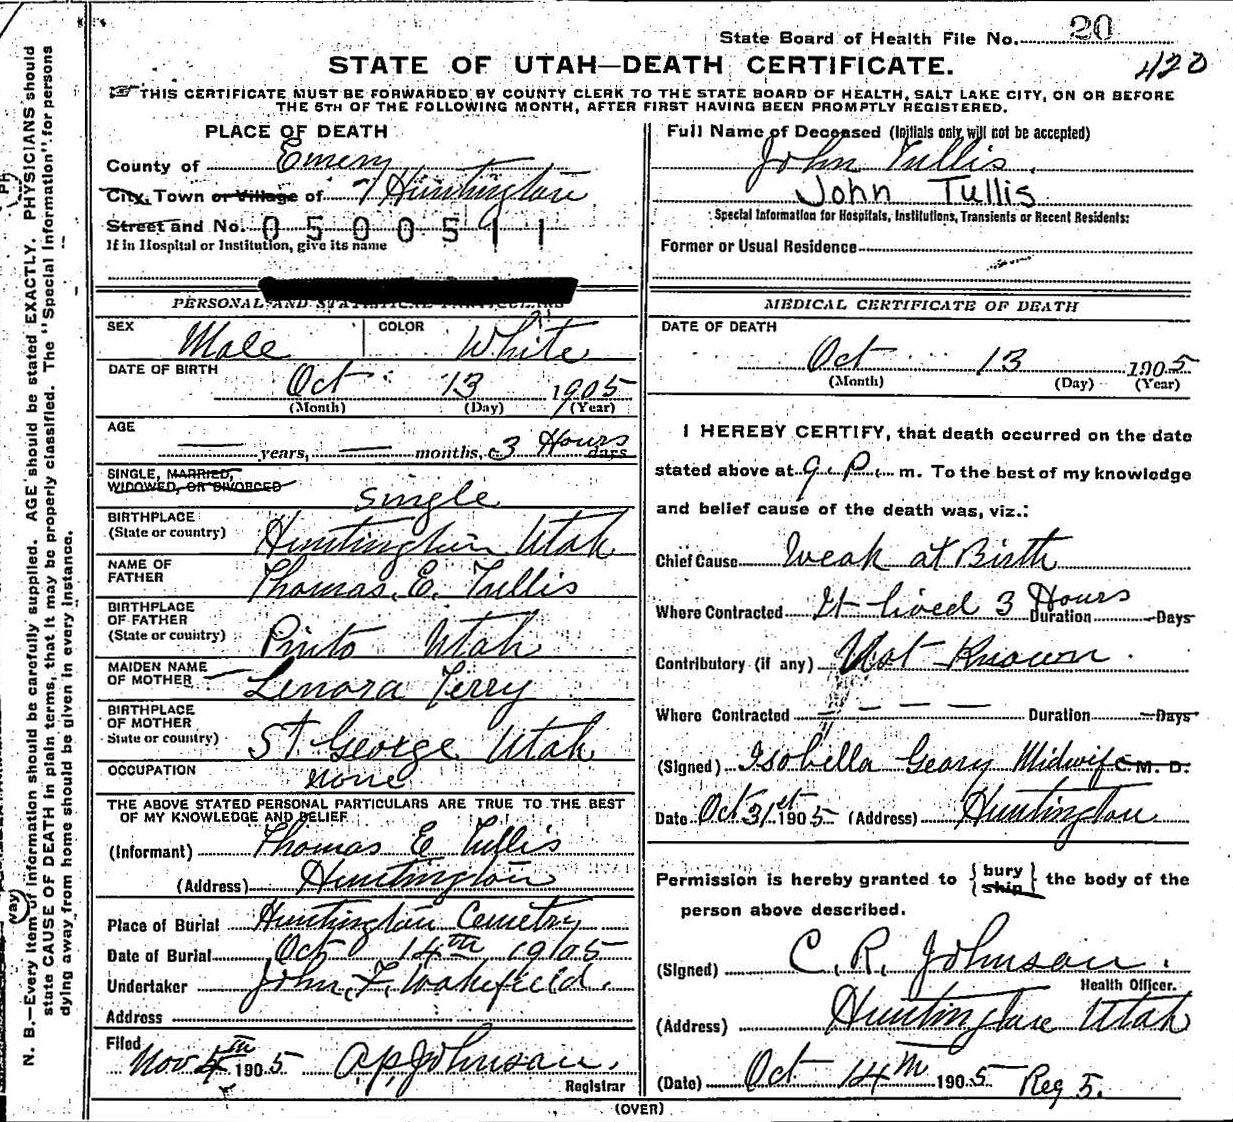 State Board of Health File No. 20
420
STATE OF UTAH—DEATH CERTIFICATE.
THIS CERTIFICATE MUST BE FORWARDED BY COUNTY CLERK TO THE STATE BOARD OF HEALTH, SALT LAKE CITY, ON OR BEFORE
THE 5TH OF THE FOLLOWING MONTH, AFTER FIRST HAVING BEEN PROMPTLY REGISTERED.
PLACE OF DEATH
County of Emery
City, Town or Village of Huntington
Street and No. 0500511
If in Hospital or Institution, give its name
Full Name of Deceased (Initials only will not be accepted)
John Tullis.
John Tullis
Special Information for Hospitals, Institutions, Transients or Recent Residents:
Former or Usual Residence
PERSONAL AND STATISTICAL PARTICULARS
SEX Male COLOR White
DATE OF BIRTH
Oct 13 1905
(Month) (Day) (Year)
AGE
years, months, 3 Hours days
SINGLE, MARRIED,
WIDOWED, OR DIVORCED single
BIRTHPLACE
(State or country) Huntington Utah
NAME OF
FATHER Thomas. E. Tullis
BIRTHPLACE
OF FATHER
(State or country) Pinto Utah
MAIDEN NAME
OF MOTHER Lenora Terry
BIRTHPLACE
OF MOTHER
State or country) St. George Utah
OCCUPATION none
THE ABOVE STATED PERSONAL PARTICULARS ARE TRUE TO THE BEST
OF MY KNOWLEDGE AND BELIEF
(Informant) Thomas E Tullis
(Address) Huntington
Place of Burial Huntington Cemetry
Date of Burial Oct 14th 1905
Undertaker John F. Wakefield.
Address
Filed
Nov 4th 1905 A.P. Johnson.
Registrar
MEDICAL CERTIFICATE OF DEATH
DATE OF DEATH
Oct 13 1905
(Month) (Day) (Year)
I HEREBY CERTIFY, that death occurred on the date
stated above at 9. P. m. To the best of my knowledge
and belief cause of the death was, viz.:
Chief Cause Weak at Birth
Where Contracted It lived 3 Hours Duration Days
Contributory (if any) Not Known.
Where Contracted Duration Days
(Signed) Isobella Geary Midwife M. D.
Date Oct 31st 1905 (Address) Huntington
Permission is hereby granted to {bury
ship} the body of the
person above described.
(Signed) C. R. Johnson.
Health Officer.
(Address) Huntington Utah
(Date) Oct 14th 1905 Reg 5.
(OVER)
N. B.—Every item of information should be carefully supplied. AGE should be stated EXACTLY. PHYSICIANS should
state CAUSE OF DEATH in plain terms, that it may be properly classified. The "Special Information" for persons
dying away from home should be given in every instance.